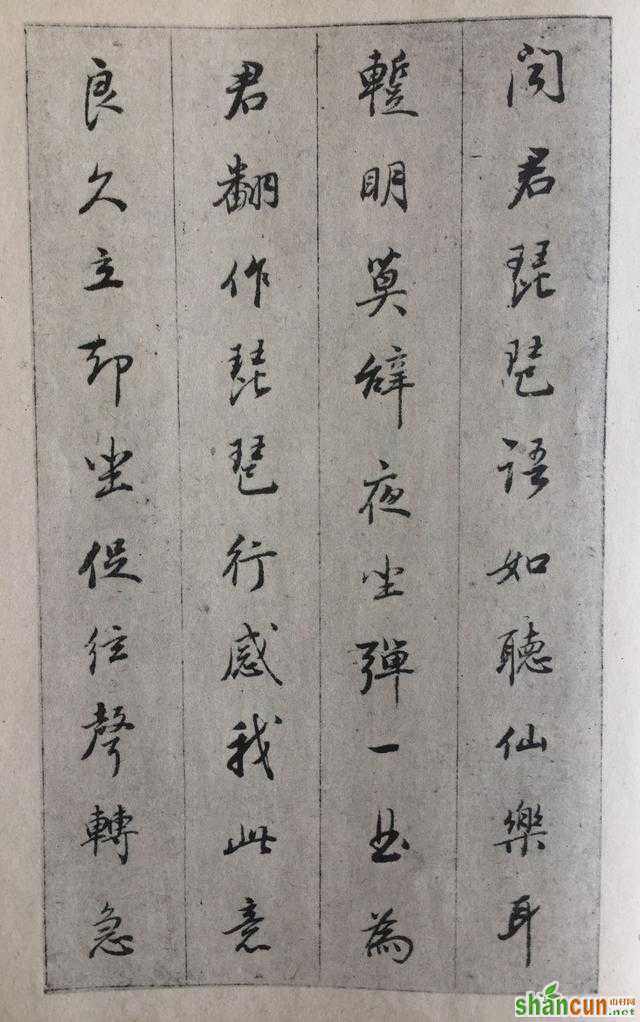 聞君琵琶語如聽仙樂耳
暫明莫辭夜坐彈一曲為
君翻作琵琶行感我此意
良久立却坐促絃聲轉急
shancun
山村网
.net